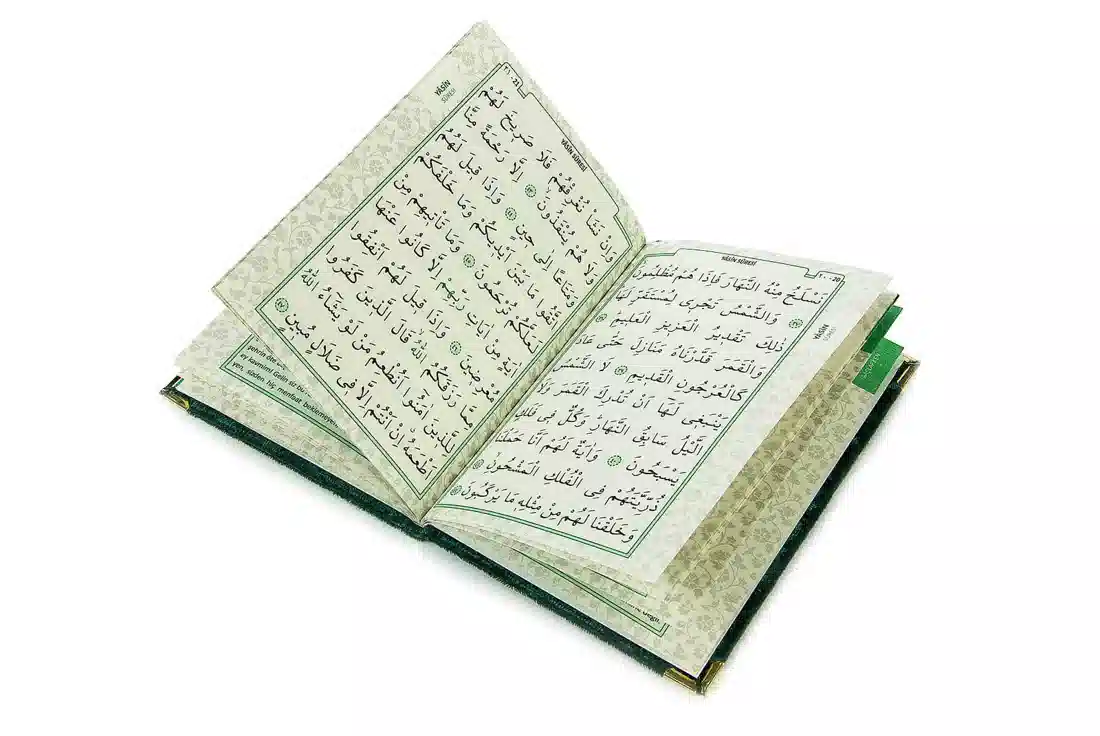 YÂSÎN SÛRESİ
٢٠ - 20
نَسْلَخُ مِنْهُ النَّهَارَ فَاِذَا هُمْ مُظْلِمُونَ ﴿٣٧﴾
وَالشَّمْسُ تَجْرِى لِمُسْتَقَرٍّ لَهَا
ذٰلِكَ تَقْدِيرُ الْعَزِيزِ الْعَلِيمِ ﴿٣٨﴾
وَالْقَمَرَ قَدَّرْنَاهُ مَنَازِلَ حَتّٰى عَادَ
كَالْعُرْجُونِ الْقَدِيمِ ﴿٣٩﴾ لَا الشَّمْسُ
يَنْبَغِى لَهَا اَنْ تُدْرِكَ الْقَمَرَ وَلَا
الَّيْلُ سَابِقُ النَّهَارِ وَكُلٌّ فِى فَلَكٍ
يَسْبَحُونَ ﴿٤٠﴾ وَاٰيَةٌ لَهُمْ اَنَّا حَمَلْنَا
ذُرِّيَّتَهُمْ فِى الْفُلْكِ الْمَشْحُونِ ﴿٤١﴾
وَخَلَقْنَا لَهُمْ مِنْ مِثْلِهِ مَا يَرْكَبُونَ ﴿٤٢﴾
YÂSÎN
SÛRESİ
YÂSÎN SÛRESİ
٢١ - 21
وَاِنْ نَشَأْ نُغْرِقْهُمْ فَلَا صَرِيخَ لَهُمْ
وَلَا هُمْ يُنْقَذُونَ ﴿٤٣﴾ اِلَّا رَحْمَةً مِنَّا
وَمَتَاعًا اِلٰى حِينٍ ﴿٤٤﴾ وَاِذَا قِيلَ لَهُمُ
اتَّقُوا مَا بَيْنَ اَيْدِيكُمْ وَمَا خَلْفَكُمْ
لَعَلَّكُمْ تُرْحَمُونَ ﴿٤٥﴾ وَمَا تَأْتِيهِمْ مِنْ
اٰيَةٍ مِنْ اٰيَاتِ رَبِّهِمْ اِلَّا كَانُوا عَنْهَا
مُعْرِضِينَ ﴿٤٦﴾ وَاِذَا قِيلَ لَهُمْ اَنْفِقُوا
مِمَّا رَزَقَكُمُ اللّٰهُ قَالَ الَّذِينَ كَفَرُوا
لِلَّذِينَ اٰمَنُوا اَنُطْعِمُ مَنْ لَوْ يَشَاءُ اللّٰهُ
اَطْعَمَهُ اِنْ اَنْتُمْ اِلَّا فِى ضَلَالٍ مُبِينٍ ﴿٤٧﴾
YÂSÎN
SÛRESİ
şehrin öte
ey kavmim! Gelin siz bu
yen, sizden hiç menfaat beklemeyen